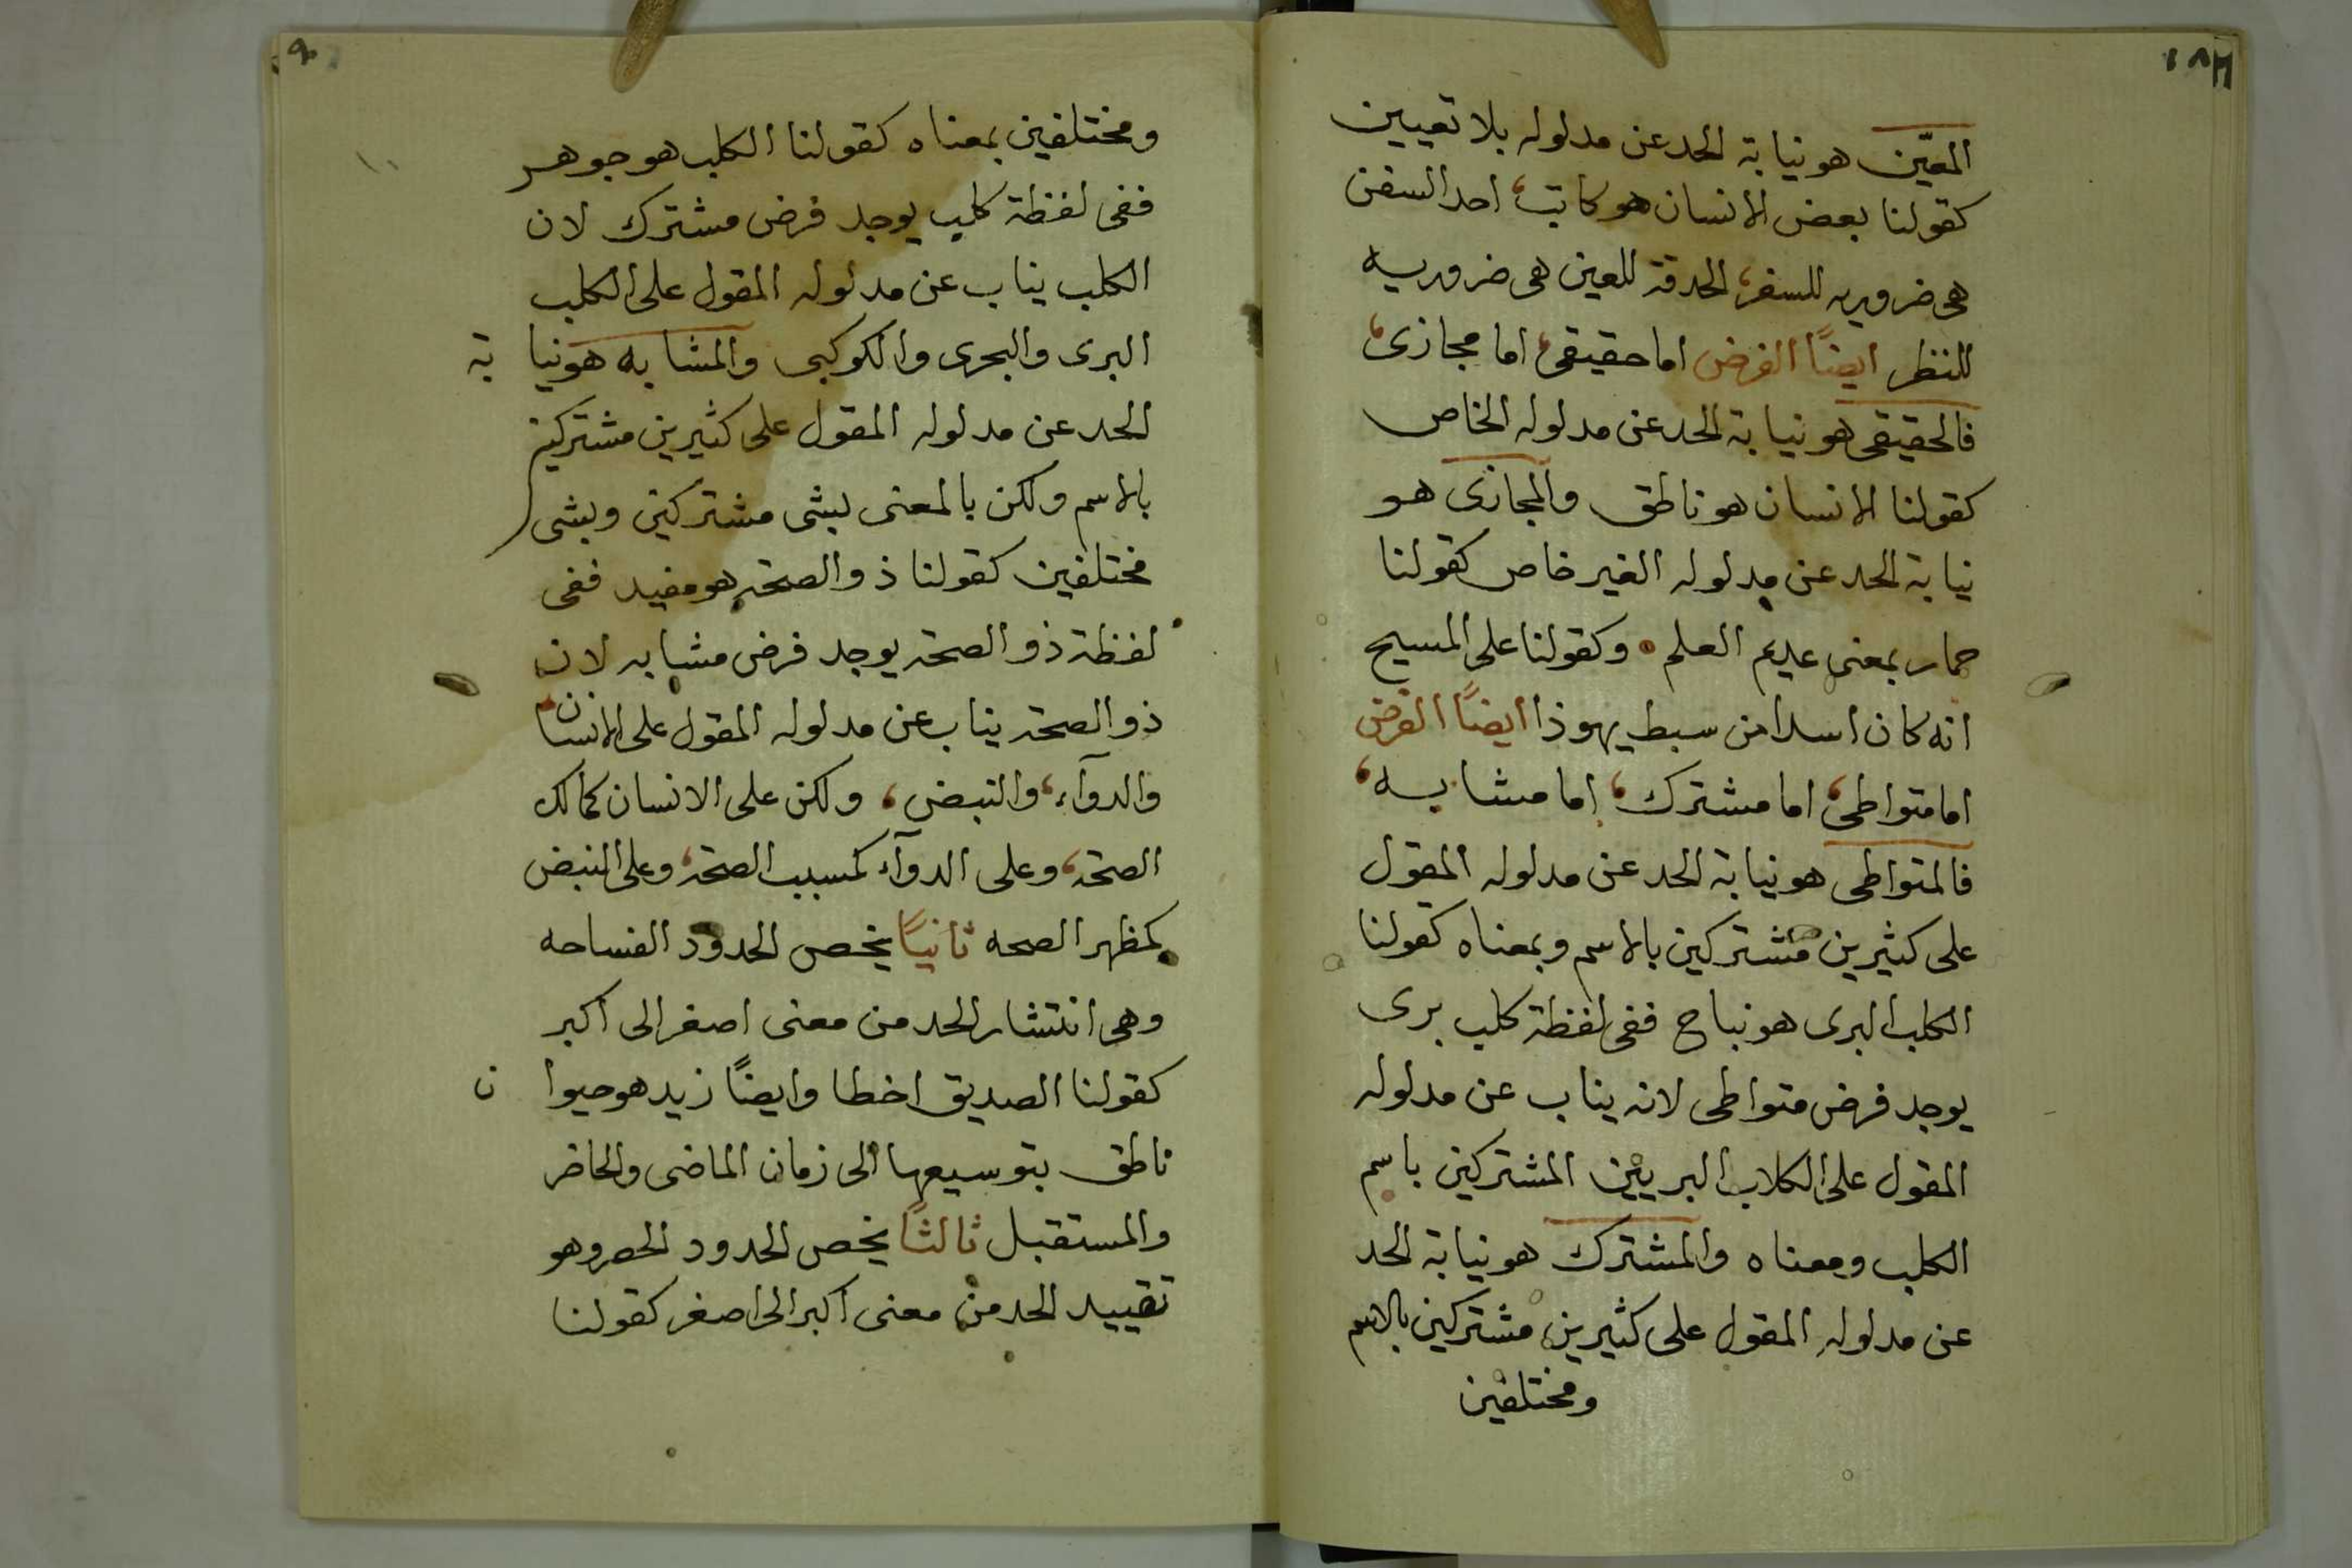 المعيّن هو نيابة الحد عن مدلوله بلا تعيين
كقولنا بعض الانسان هو كاتب، احد السفن
هى ضروريه للسفر، الحدقة للعين هى ضروريه
للنظر ايضًا الفرض اما حقيقى، اما مجازى،
فالحقيقى هو نيابة الحد عن مدلوله الخاص
كقولنا الانسان هو ناطق والمجازى هو
نيابة الحد عن مدلوله الغير خاص كقولنا
حمار بمعنى عديم العلم . وكقولنا على المسيح
انه كان اسدا من سبط يهوذا ايضًا الفرض
اما متواطى، اما مشترك، اما مشابه،
فالمتواطى هو نيابة الحد عن مدلوله المقول
على كثيرين مشتركين بالاسم وبمعناه كقولنا
الكلب البرى هو نباح ففى لفظة كلب برى
يوجد فرض متواطى لانه يناب عن مدلوله
المقول على الكلاب البريين المشتركين باسم
الكلب ومعناه والمشترك هو نيابة الحد
عن مدلوله المقول على كثيرين مشتركين بالاسم
ومختلفين
٩
ومختلفين بمعناه كقولنا الكلب هو جوهر
ففى لفظة كلب يوجد فرض مشترك لان
الكلب يناب عن مدلوله المقول على الكلب
البرى والبحرى والكوكبى والمشابه هو نيابة
الحد عن مدلوله المقول على كثيرين مشتركين
بالاسم ولكن بالمعنى بشى مشتركين وبشى
مختلفين كقولنا ذو الصحة هو مفيد ففى
لفظة ذو الصحة يوجد فرض مشابه لان
ذو الصحة يناب عن مدلوله المقول على الانسان
والدوآء، والنبض، ولكن على الانسان كمالك
الصحة، وعلى الدوآء كمسبب الصحة، وعلى النبض
كمظهر الصحه ثانيًا يخص الحدود الفساحه
وهى انتشار الحد من معنى اصغر الى اكبر
كقولنا الصديق اخطا وايضًا زيد هو حيوان
ناطق بتوسيعها الى زمان الماضى والحاضر
والمستقبل ثالثًا يخص الحدود الحصر وهو
تقييد الحد من معنى اكبر الى اصغر كقولنا